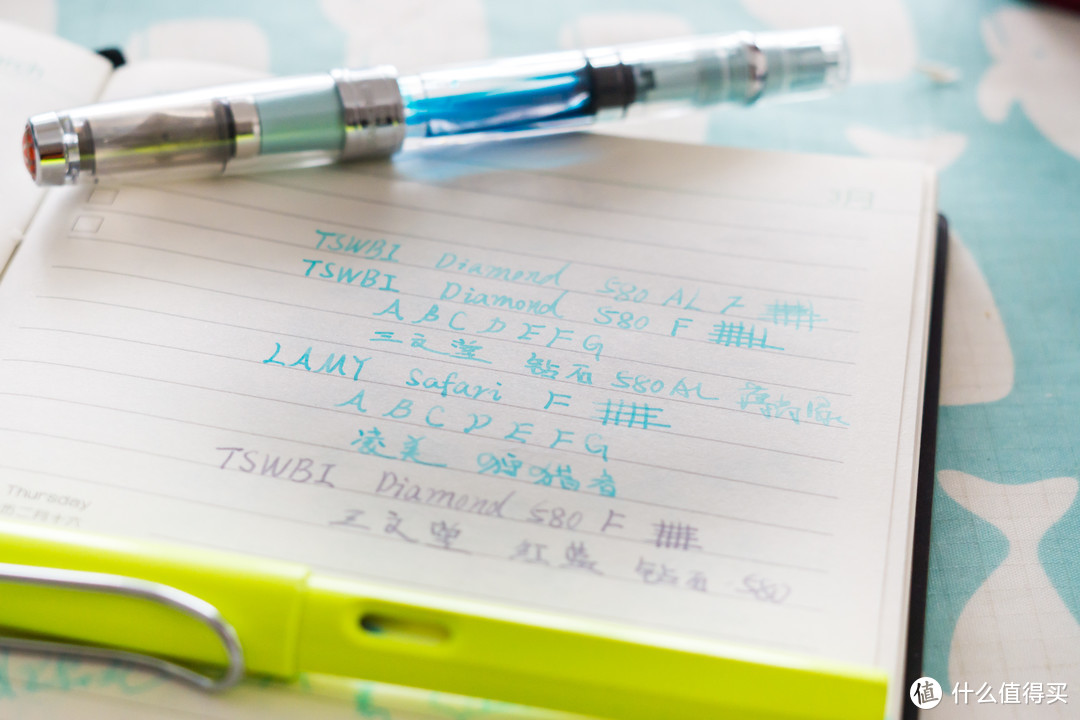 TSWBI Diamond 580 AL F
TSWBI Diamond 580 F
A B C D E F G
三文堂 钻石 580 AL 薄荷
LAMY Safari F
A B C D E F G
凌美 狩猎者
TSWBI Diamond 580 F
三文堂 红蓝 钻石 580
Thursday
值 什么值得买